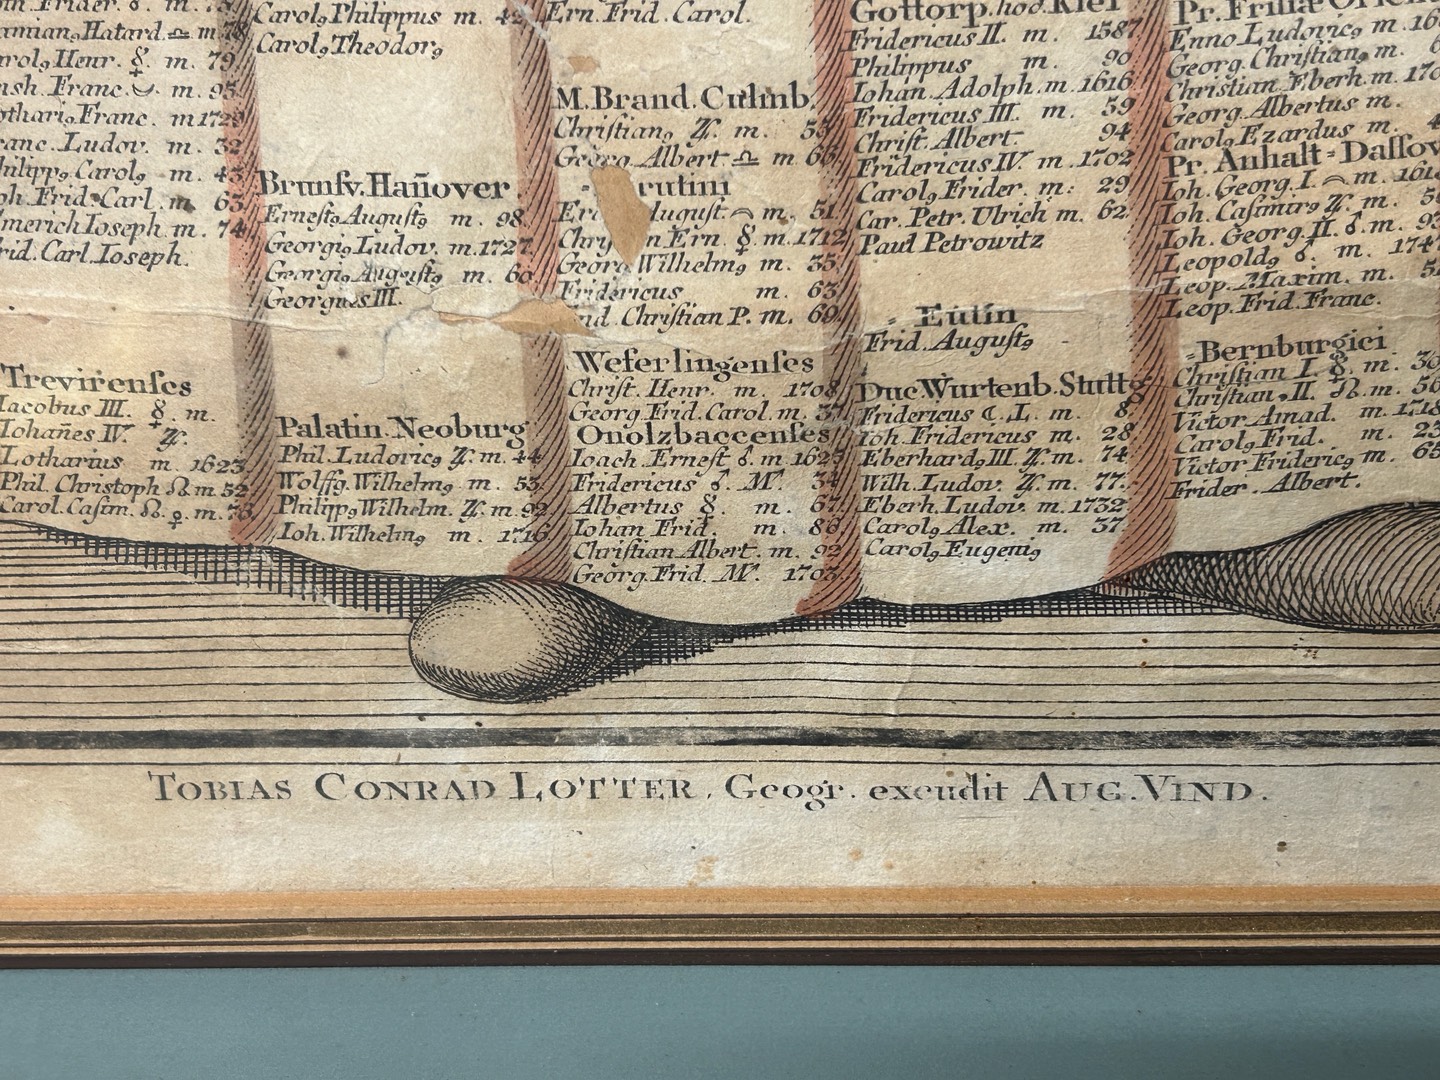 m. 75
amianꝯ Hatard. ♎ m. 78
arolꝯ Henr. ☿. m. 79
nsh. Franc. m. 95
othariꝯ Franc. m 1729
ranc. Ludov. m. 32
hilippꝯ Carolꝯ m. 43
oh. Frid. Carl. m. 63
merich Ioseph. m. 74
rid. Carl. Ioseph.
Trevirenſes
Iacobus III. ☿. m.
Iohañes IV. ♃.
Lotharius m. 1623
Phil. Christoph ☊ m. 52
Carol. Caſim. ☊. ♀. m. 76
Carolꝯ Philippus m. 42
Carolꝯ Theodorꝯ
Brunſv. Hañover
Erneſtꝯ Auguſtꝯ m. 98
Georgiꝯ Ludov. m. 1727
Georgiꝯ Auguſtꝯ m. 60
Georgius III.
Palatin. Neoburg
Phil. Ludovicꝯ ♃. m. 44
Wolffg. Wilhelmꝯ m. 53
Philipꝯ Wilhelm. ♃. m. 92
Ioh. Wilhelmꝯ m. 1716
Ern. Frid. Carol.
M. Brand. Culmb.
Chriſtianꝯ ♃. m. 55
Georg. Albert. ♎ m. 66
rutini
Er Auguſt. m. 51
Chri n Ern ☿ m. 1712
Georg Wilhelmꝯ m. 35
Fridericus m. 63
rid. Chriſtian P. m. 69
Weferlingenſes
Chriſt. Henr. m. 1708
Georg. Frid. Carol. m. 37
Onolzbaccenſes
Ioach. Erneſt ♂. m 1625
Fridericus ♂. M. 34
Albertus ☿. m. 67
Iohan Frid. m. 86
Chriſtian Albert. m. 92
Georg. Frid. M. 1703
Gottorp. hod. Kiel
Fridericus II. m. 1587
Philippus m. 90
Iohan Adolph. m. 1616
Fridericus III. m. 59
Chriſt. Albert. 94
Fridericus IV. m. 1702
Carolꝯ Frider. m: 29
Car. Petr. Ulrich m. 62
Paul Petrowitz
= Eutin
Frid. Auguſtꝯ
Duc. Wurtenb. Stuttg
Fridericus ☾. I. m. 8
Ioh. Fridericus m. 28
Eberhardꝯ III. ♃. m. 74
Wilh. Ludov. ♃. m. 77.
Eberh. Ludov. m. 1732
Carolꝯ Alex. m. 37
Carolꝯ Eugeniꝯ
Pr. Friſiæ Orien
Enno Ludovicꝯ m. 16
Georg. Chriſtianꝯ m. 6
Chriſtian Eberh. m. 170
Georg. Albertus m.
Carolꝯ Ezardus m. 4
Pr. Anhalt = Daſſov
Ioh. Georg. I. m. 1618
Ioh. Caſimirꝯ ♃. m.
Ioh. Georg. II. ♂. m. 93
Leopoldꝯ ♂. m. 174
Leop. Maxim. m. 51
Leop. Frid. Franc.
= Bernburgici
Chriſtian I. ☿. m. 30
Chriſtian. II. ☊. m. 56
Victor Amad. m. 1718
Carolꝯ Frid. m. 23
Victor Fridericꝯ m. 65
Frider. Albert.
TOBIAS CONRAD LOTTER. Geogr. excudit AUG. VIND.